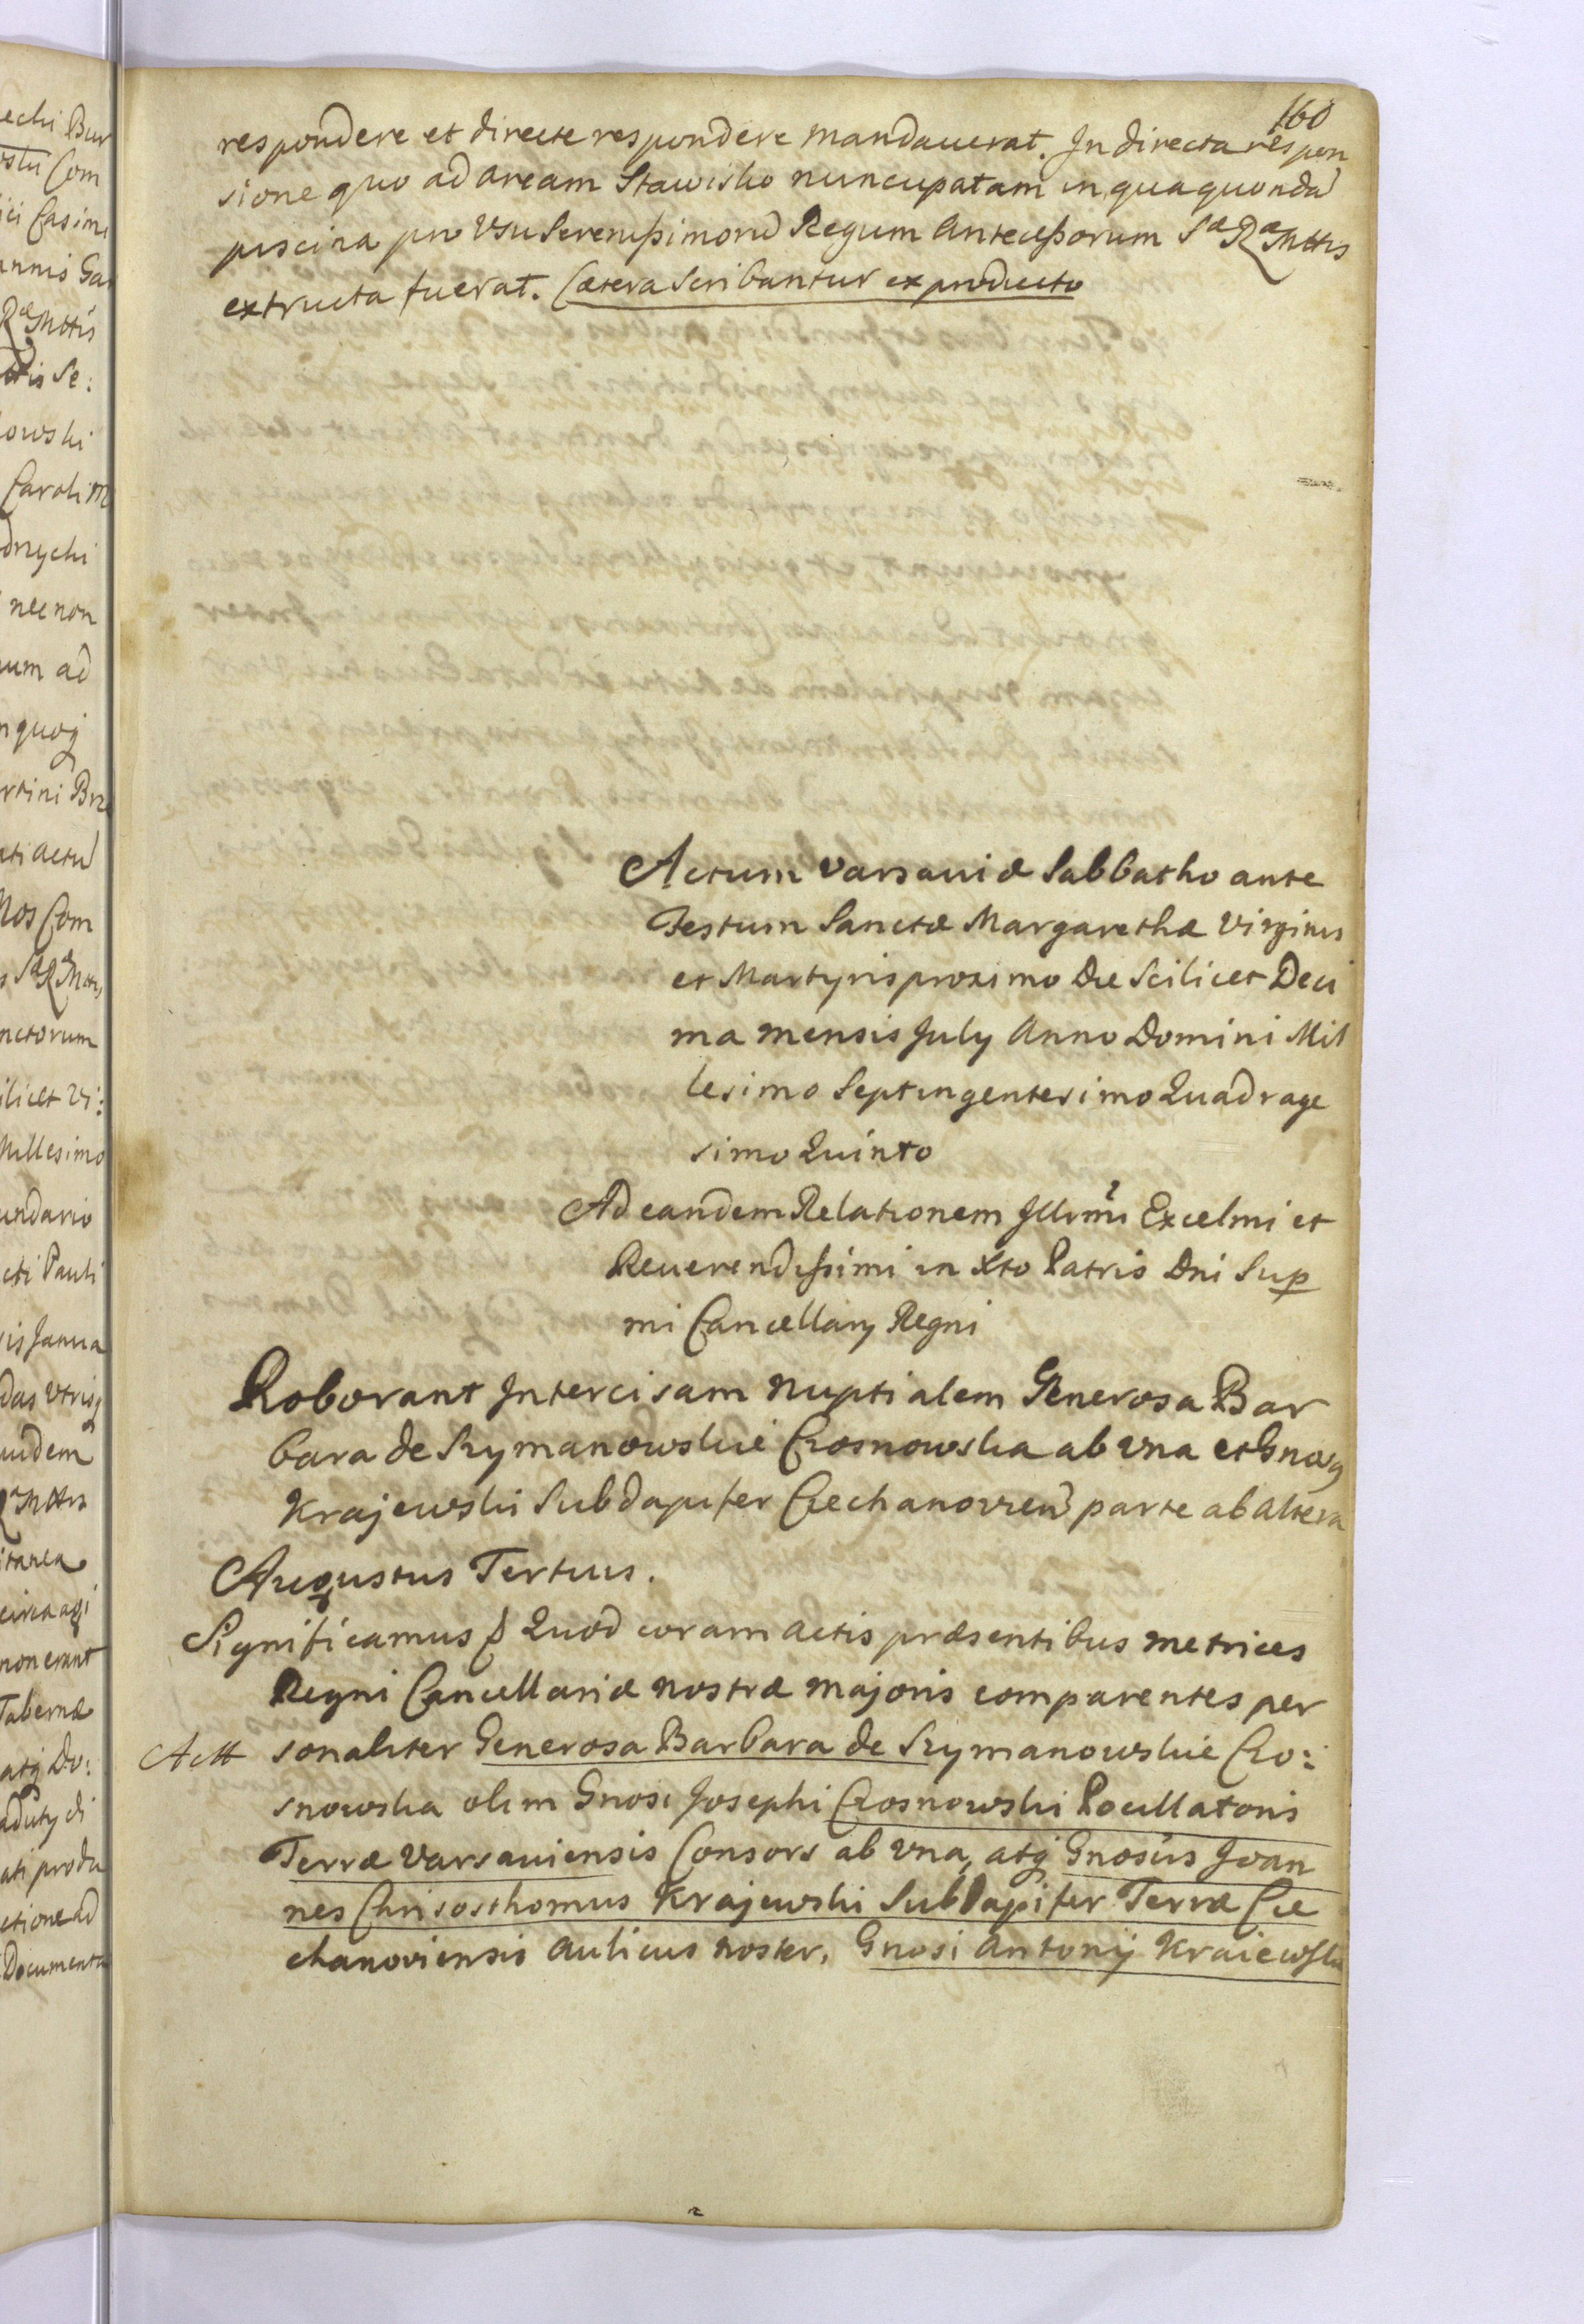 160
respondere et directe respondere mandauerat. In directa respon
sione quo ad aream Stawisko nuncupatam in qua quonda
piscina pro Vsu Serenissimoru Regum Antecessorum Sæ Ræ Mttis
extructa fuerat. Cætera Scribantur ex producto
Actum Varsaviæ Sabbatho ante
Festum Sanctæ Margarethæ Virginis
et Martyris proximo Die Scilicet Deci
ma mensis July Anno Domini Mil
lesimo Septingentesimo Quadrage
simo Quinto
Ad eandem Relationem Illrmi Excelmi et
Reuerendissimi in Xto Patris Dni Sup
mi Cancellarij Regni
Roborant Intercisam nuptialem Generosa Bar
bara de Szymanowskie Crosnowska ab vna et Gnosq
Krajewski Subdapifer Ciechanovien parte ab altera
Augustus Tertius.
Significamus & Quod coram Actis præsentibus metrices
Regni Cancellariæ nostræ majoris comparentes per
Actt sonaliter Generosa Barbara de Szymanowskie Cro:
snowska olim Gnosi Josephi Crosnowski Pocillatoris
Terræ Varsaviensis Consors ab vna, atq Gnosus Joan
nes Chrisosthomus Krajewski SubDapifer Terræ Cie
chanoviensis Aulicus noster, Gnosi Antonij Kraiewski
echi Bur
Com
ici Casimi
annis Ga
Ræ Mttis
Se:
owski
Caroli M
drychi
nec non
um ad
quoq
rtini Brz
ati actu
Nos Com
Sæ Ræ Mttis
nctorum
ilicet Vi:
Millesimo
undario
cti Pauli
is Janua
das Vtrisq
uidem
Mttis
circa agi
non erant
Tabernæ
atq Do:
ati produ
ctione ad
Documenta